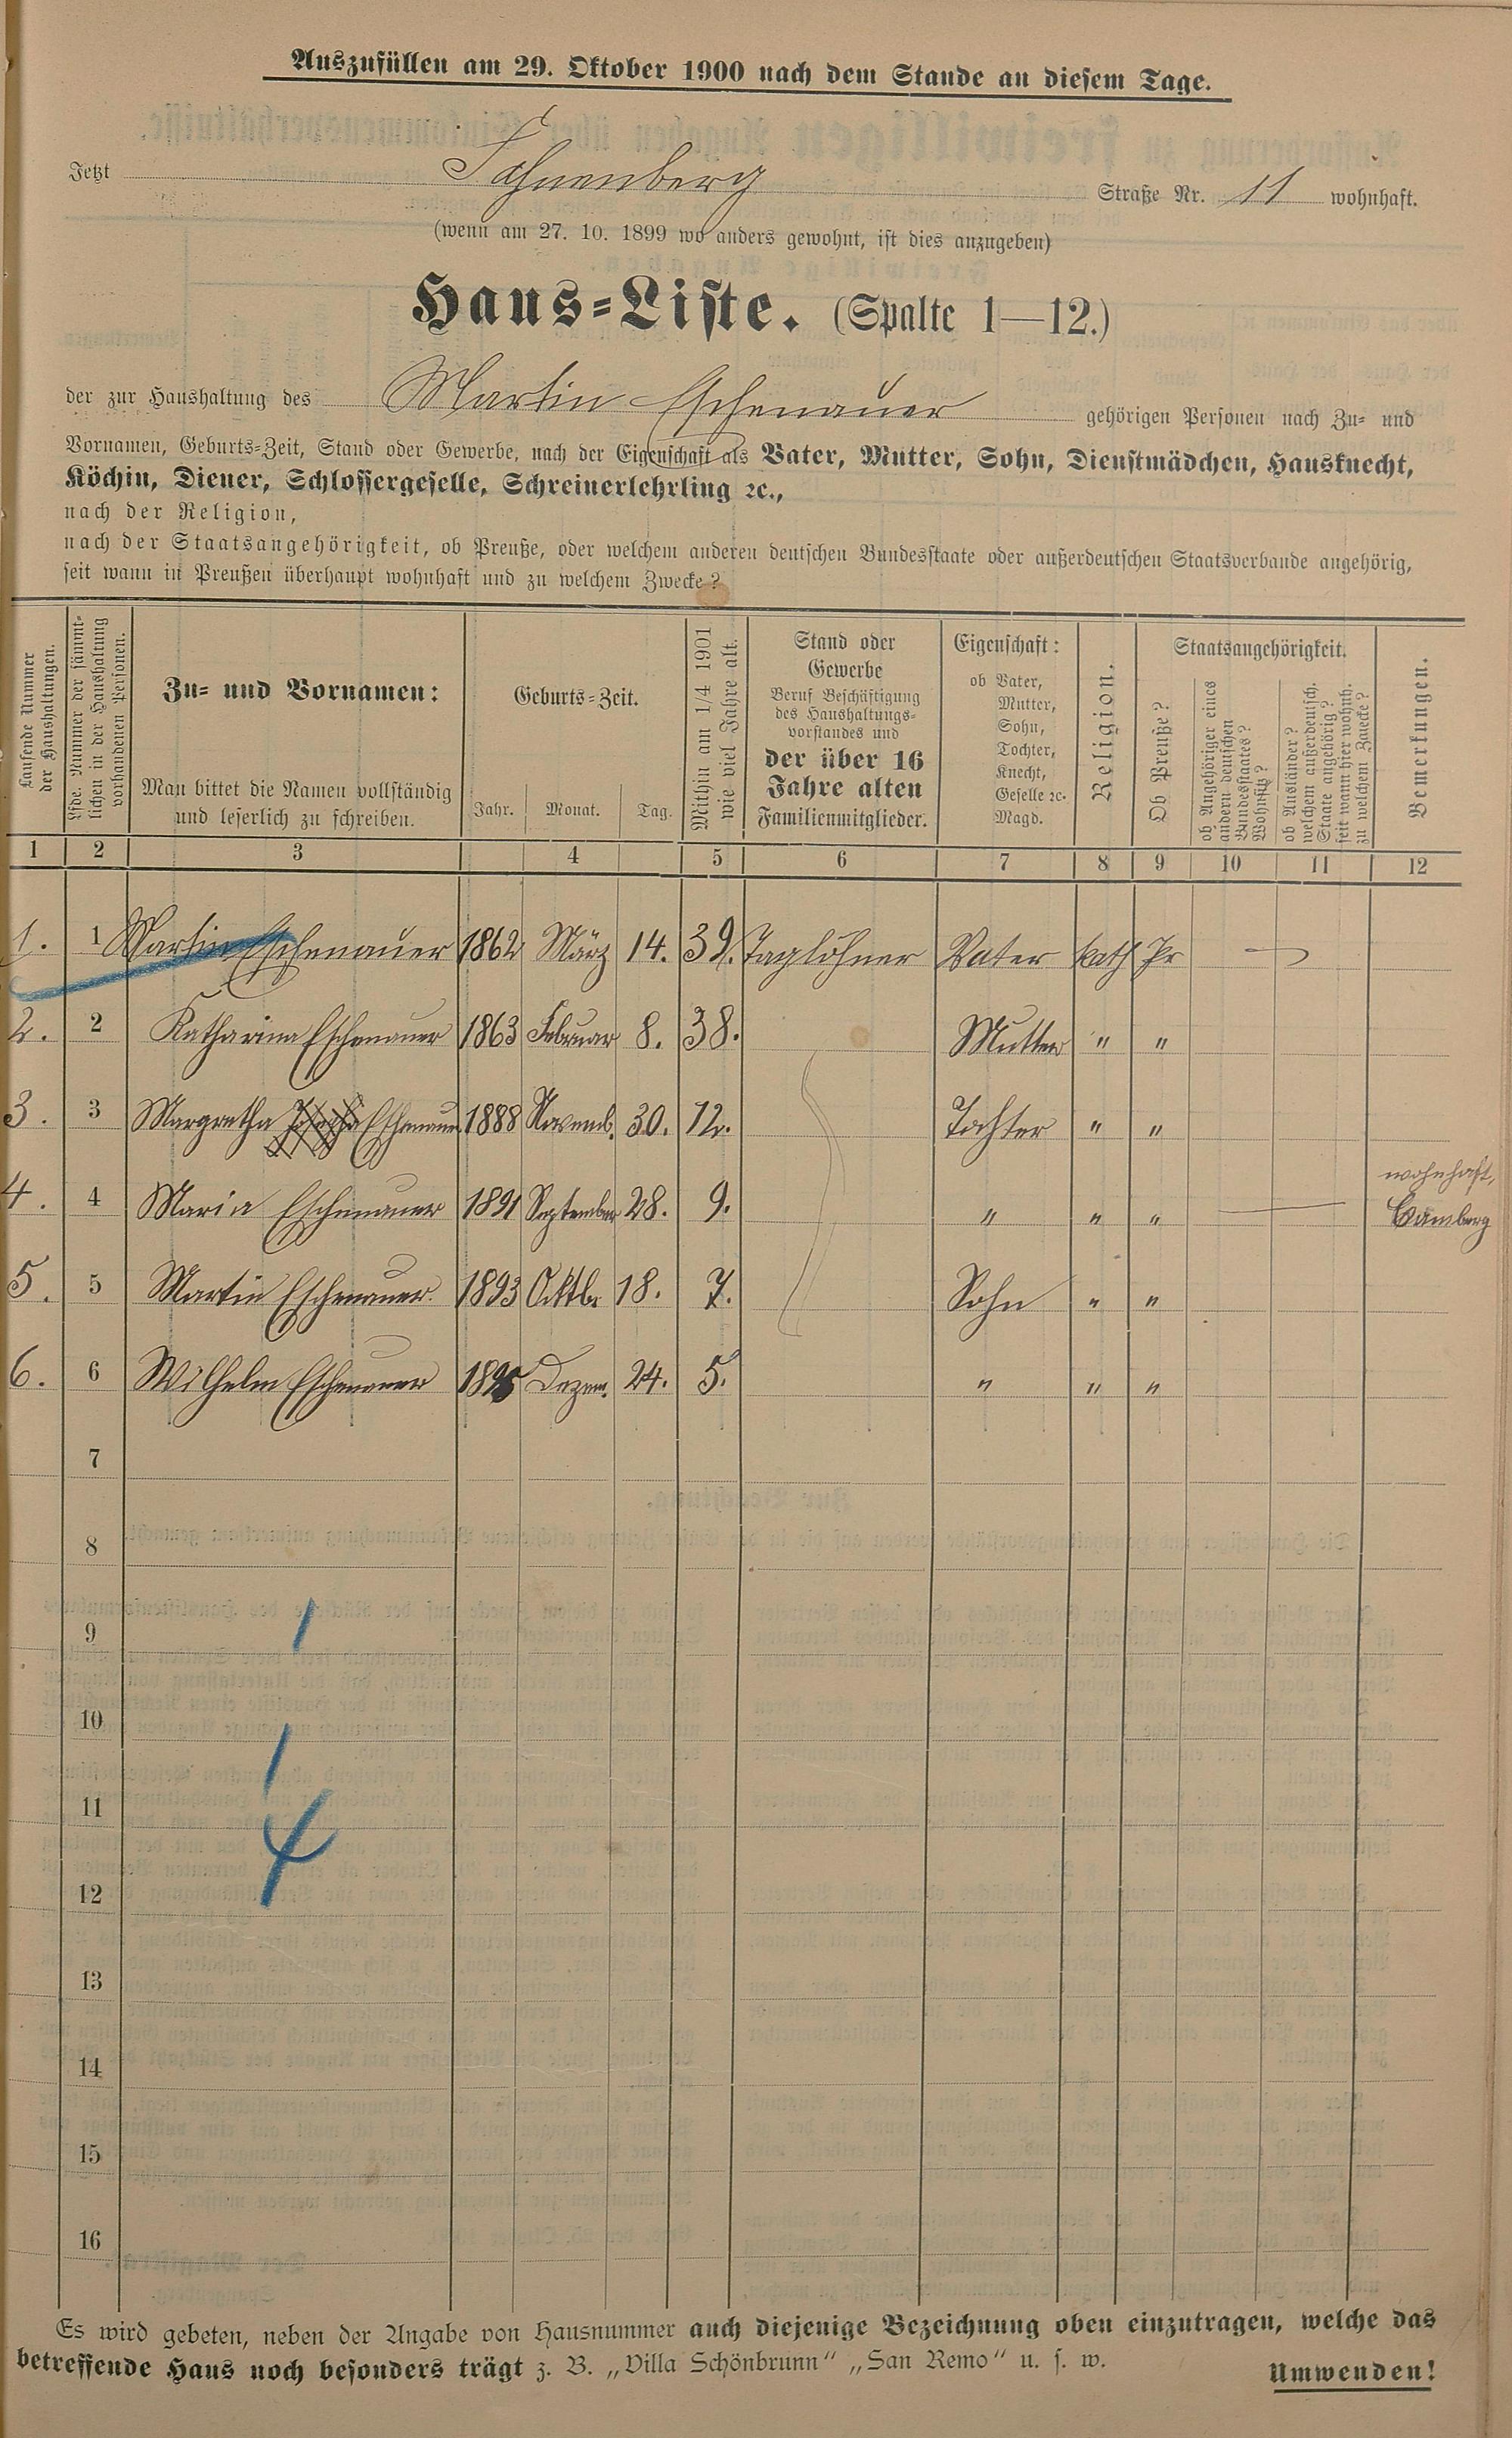 Auszufüllen am 29. Oktober 1900 nach dem Stande an diesem Tage.
Jetzt Fahnenberg Straße Nr. 11 wohnhaft.
(wenn am 27. 10. 1899 wo anders gewohnt, ist dies anzugeben)
Haus-Liste. (Spalte 1—12.)
der zur Haushaltung des Martin Eschenauer gehörigen Personen nach Zu- und
Vornamen, Geburts-Zeit, Stand oder Gewerbe, nach der Eigenschaft als Vater, Mutter, Sohn, Dienstmädchen, Hausknecht,
Köchin, Diener, Schlossergeselle, Schreinerlehrling ꝛc.,
nach der Religion,
nach der Staatsangehörigkeit, ob Preuße, oder welchem anderen deutschen Bundesstaate oder außerdeutschen Staatsverbande angehörig,
seit wann in Preußen überhaupt wohnhaft und zu welchem Zwecke?
Laufende Nummer
der Haushaltungen.
Lfde. Nummer der sämmt-
lichen in der Haushaltung
vorhandenen Personen.
Zu- und Vornamen:
Man bittet die Namen vollständig
und leserlich zu schreiben.
Geburts-Zeit.
Jahr. Monat. Tag.
Mithin am 1/4 1901
wie viel Jahre alt.
Stand oder
Gewerbe
Beruf Beschäftigung
des Haushaltungs-
vorstandes und
der über 16
Jahre alten
Familienmitglieder.
Eigenschaft:
ob Vater,
Mutter,
Sohn,
Tochter,
Knecht,
Geselle ꝛc.
Magd.
Religion.
Staatsangehörigkeit.
Ob Preuße?
ob Angehöriger eines
andern deutschen
Bundesstaates?
Wohnsitz?
ob Ausländer?
welchem außerdeutsch.
Staate angehörig?
seit wann hier wohnh.
zu welchem Zwecke?
Bemerkungen.
1 2 3 4 5 6 7 8 9 10 11 12
1. 1 Martin Eschenauer 1862 März 14. 39. Taglöhner Vater kath Pr
2. 2 Katharina Eschenauer 1863 Februar 8. 38. Mutter " "
3. 3 Margretha Eschenauer 1888 Novemb. 30. 12. Tochter " "
4. 4 Maria Eschenauer 1891 September 28. 9. " " " wohnhaft,
Camberg
5. 5 Martin Eschenauer. 1893 Oktbr 18. 7. Sohn " "
6. 6 Wilhelm Eschenauer 1895 Dezem. 24. 5. " " "
7
8
9
10
11
12
13
14
15
16
Es wird gebeten, neben der Angabe von Hausnummer auch diejenige Bezeichnung oben einzutragen, welche das
betreffende Haus noch besonders trägt z. B. „Villa Schönbrunn“ „San Remo“ u. s. w.
Umwenden!